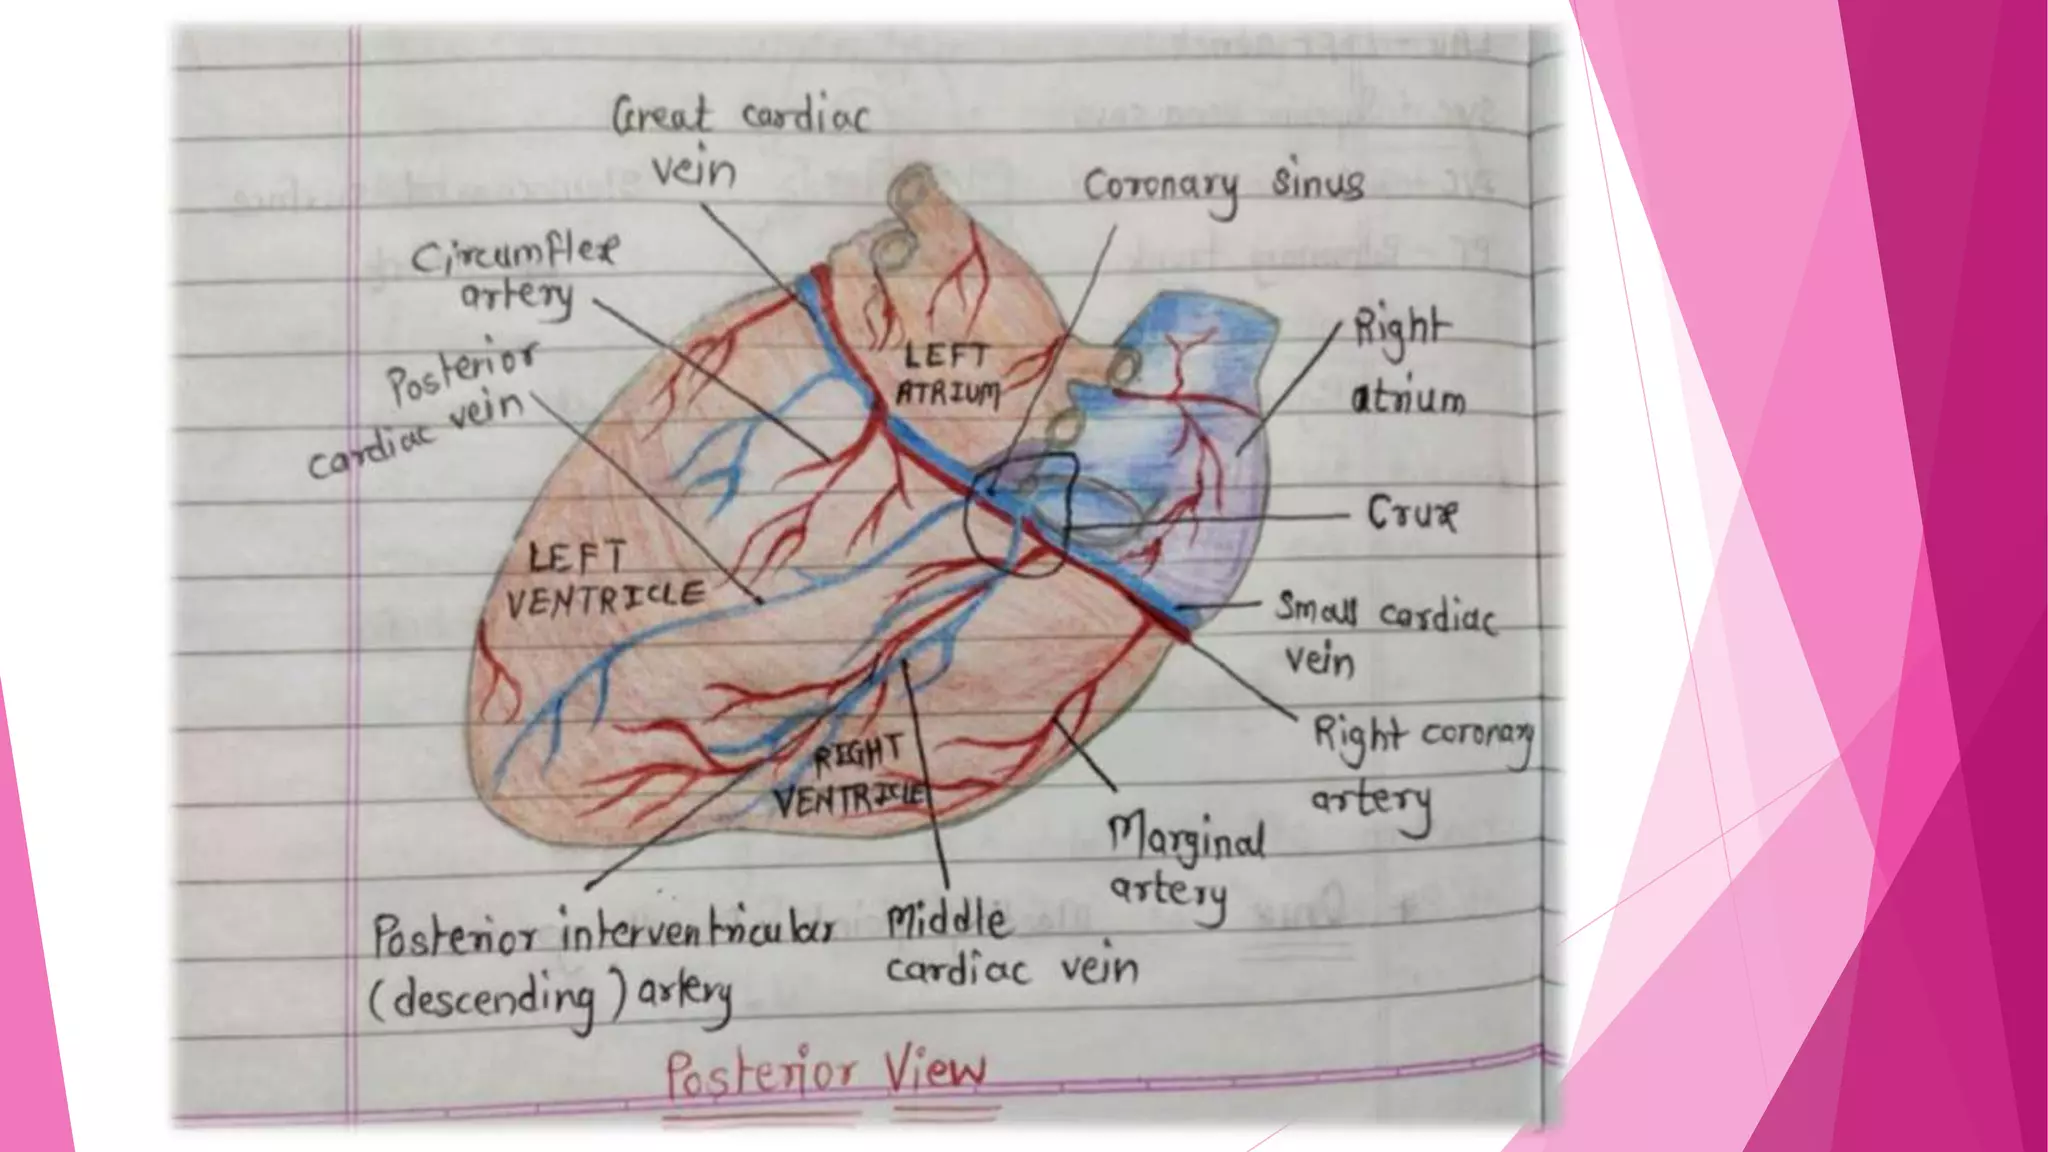 Great cardiac
vein
Coronary sinus
Circumflex
artery
Posterior
cardiac vein
Right
atrium
LEFT
ATRIUM
Crux
LEFT
VENTRICLE
Small cardiac
vein
Right coronary
artery
RIGHT
VENTRICLE
Marginal
artery
Posterior interventricular
(descending) artery
Middle
cardiac vein
Posterior View